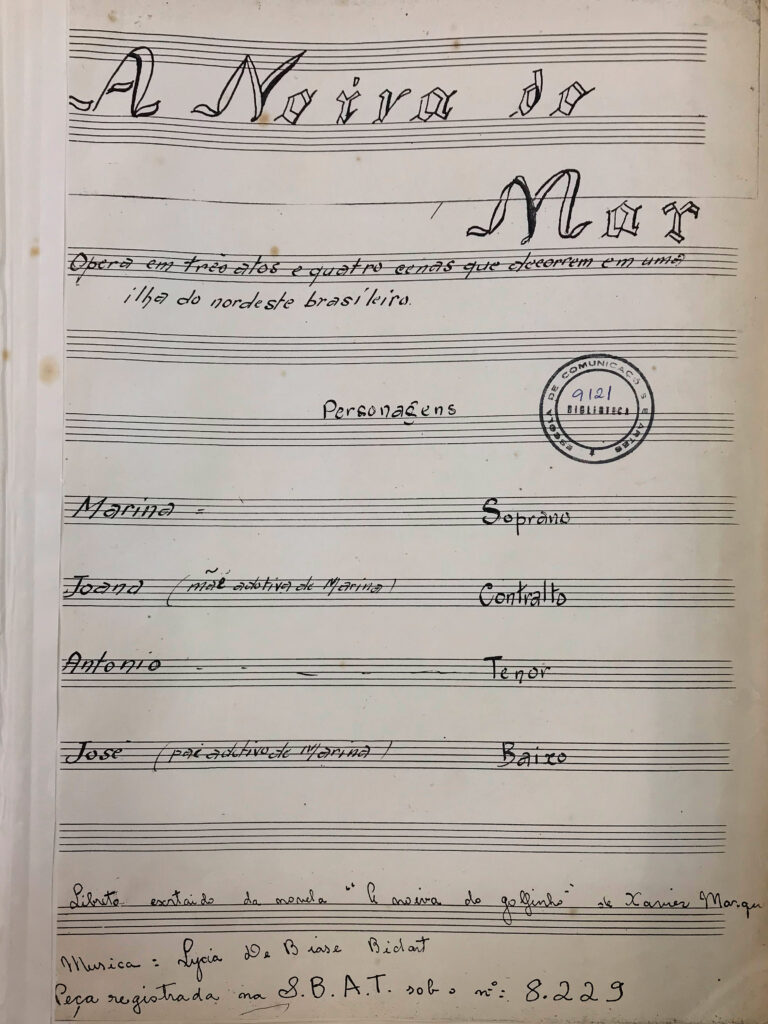 A Noiva do
Mar
Opera em três atos e quatro cenas que decorrem em uma
ilha do nordeste brasileiro.
Personagens
ESCOLA DE COMUNICAÇÕES E ARTES
9121
BIBLIOTECA
Marina = Soprano
Joana (mãe adotiva de Marina) Contralto
Antonio - - - - Tenor
José (pai adotivo de Marina) Baixo
Libreto extraido da novela "A noiva do golfinho" de Xavier Marqu
Musica: Lycia De Biase Bidart
Peça registrada na S.B.A.T. sob o nº: 8.229